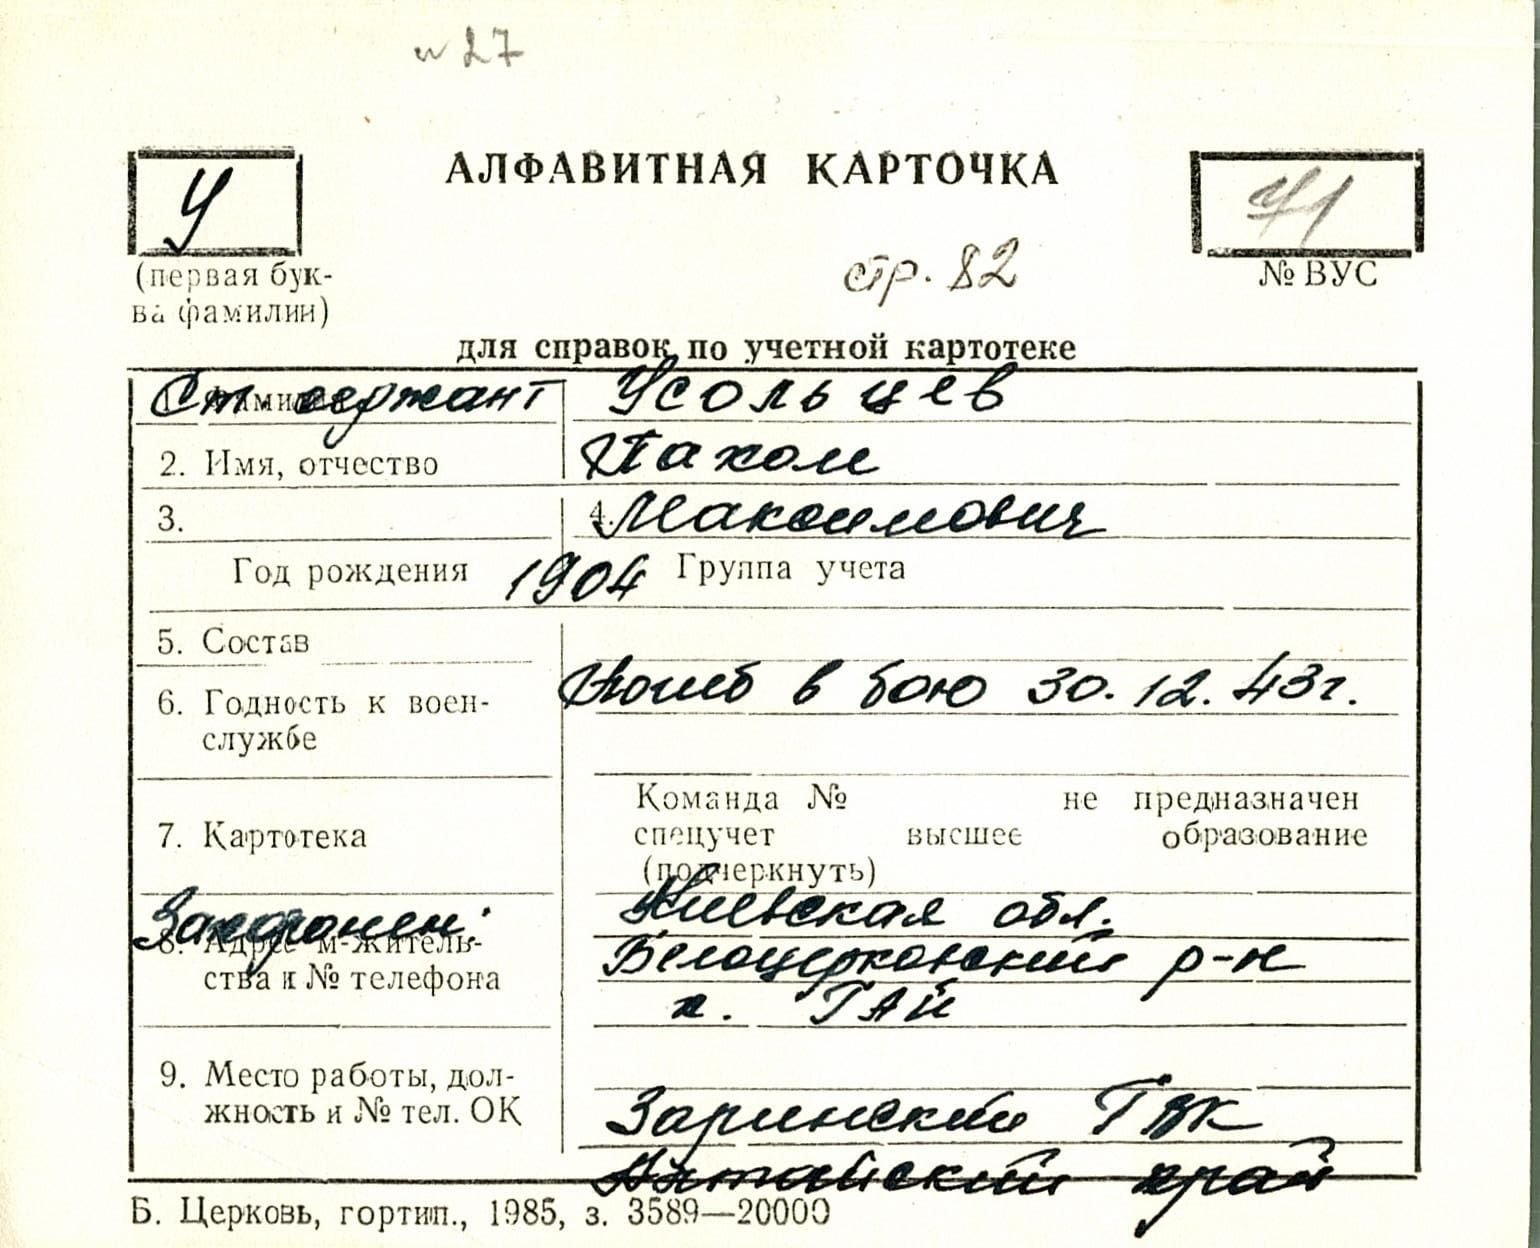 и 27
АЛФАВИТНАЯ КАРТОЧКА
У
71
(первая бук-
ва фамилии)
стр. 82
№ ВУС
для справок по учетной картотеке
Ст. сержант Усольцев
2. Имя, отчество Пахом
3. 4. Максимович
Год рождения 1904 Группа учета
5. Состав
Погиб в бою 30.12.43г.
6. Годность к воен-
службе
Команда № не предназначен
7. Картотека спецучет высшее образование
(подчеркнуть)
Захоронен: Киевская обл.
8. Адрес м-житель- Белоцерковский р-н
ства и № телефона х. ГАЙ
9. Место работы, дол-
жность и № тел. ОК Заринский ГВК
Алтайский край
Б. Церковь, гортип., 1985, з. 3589—20000